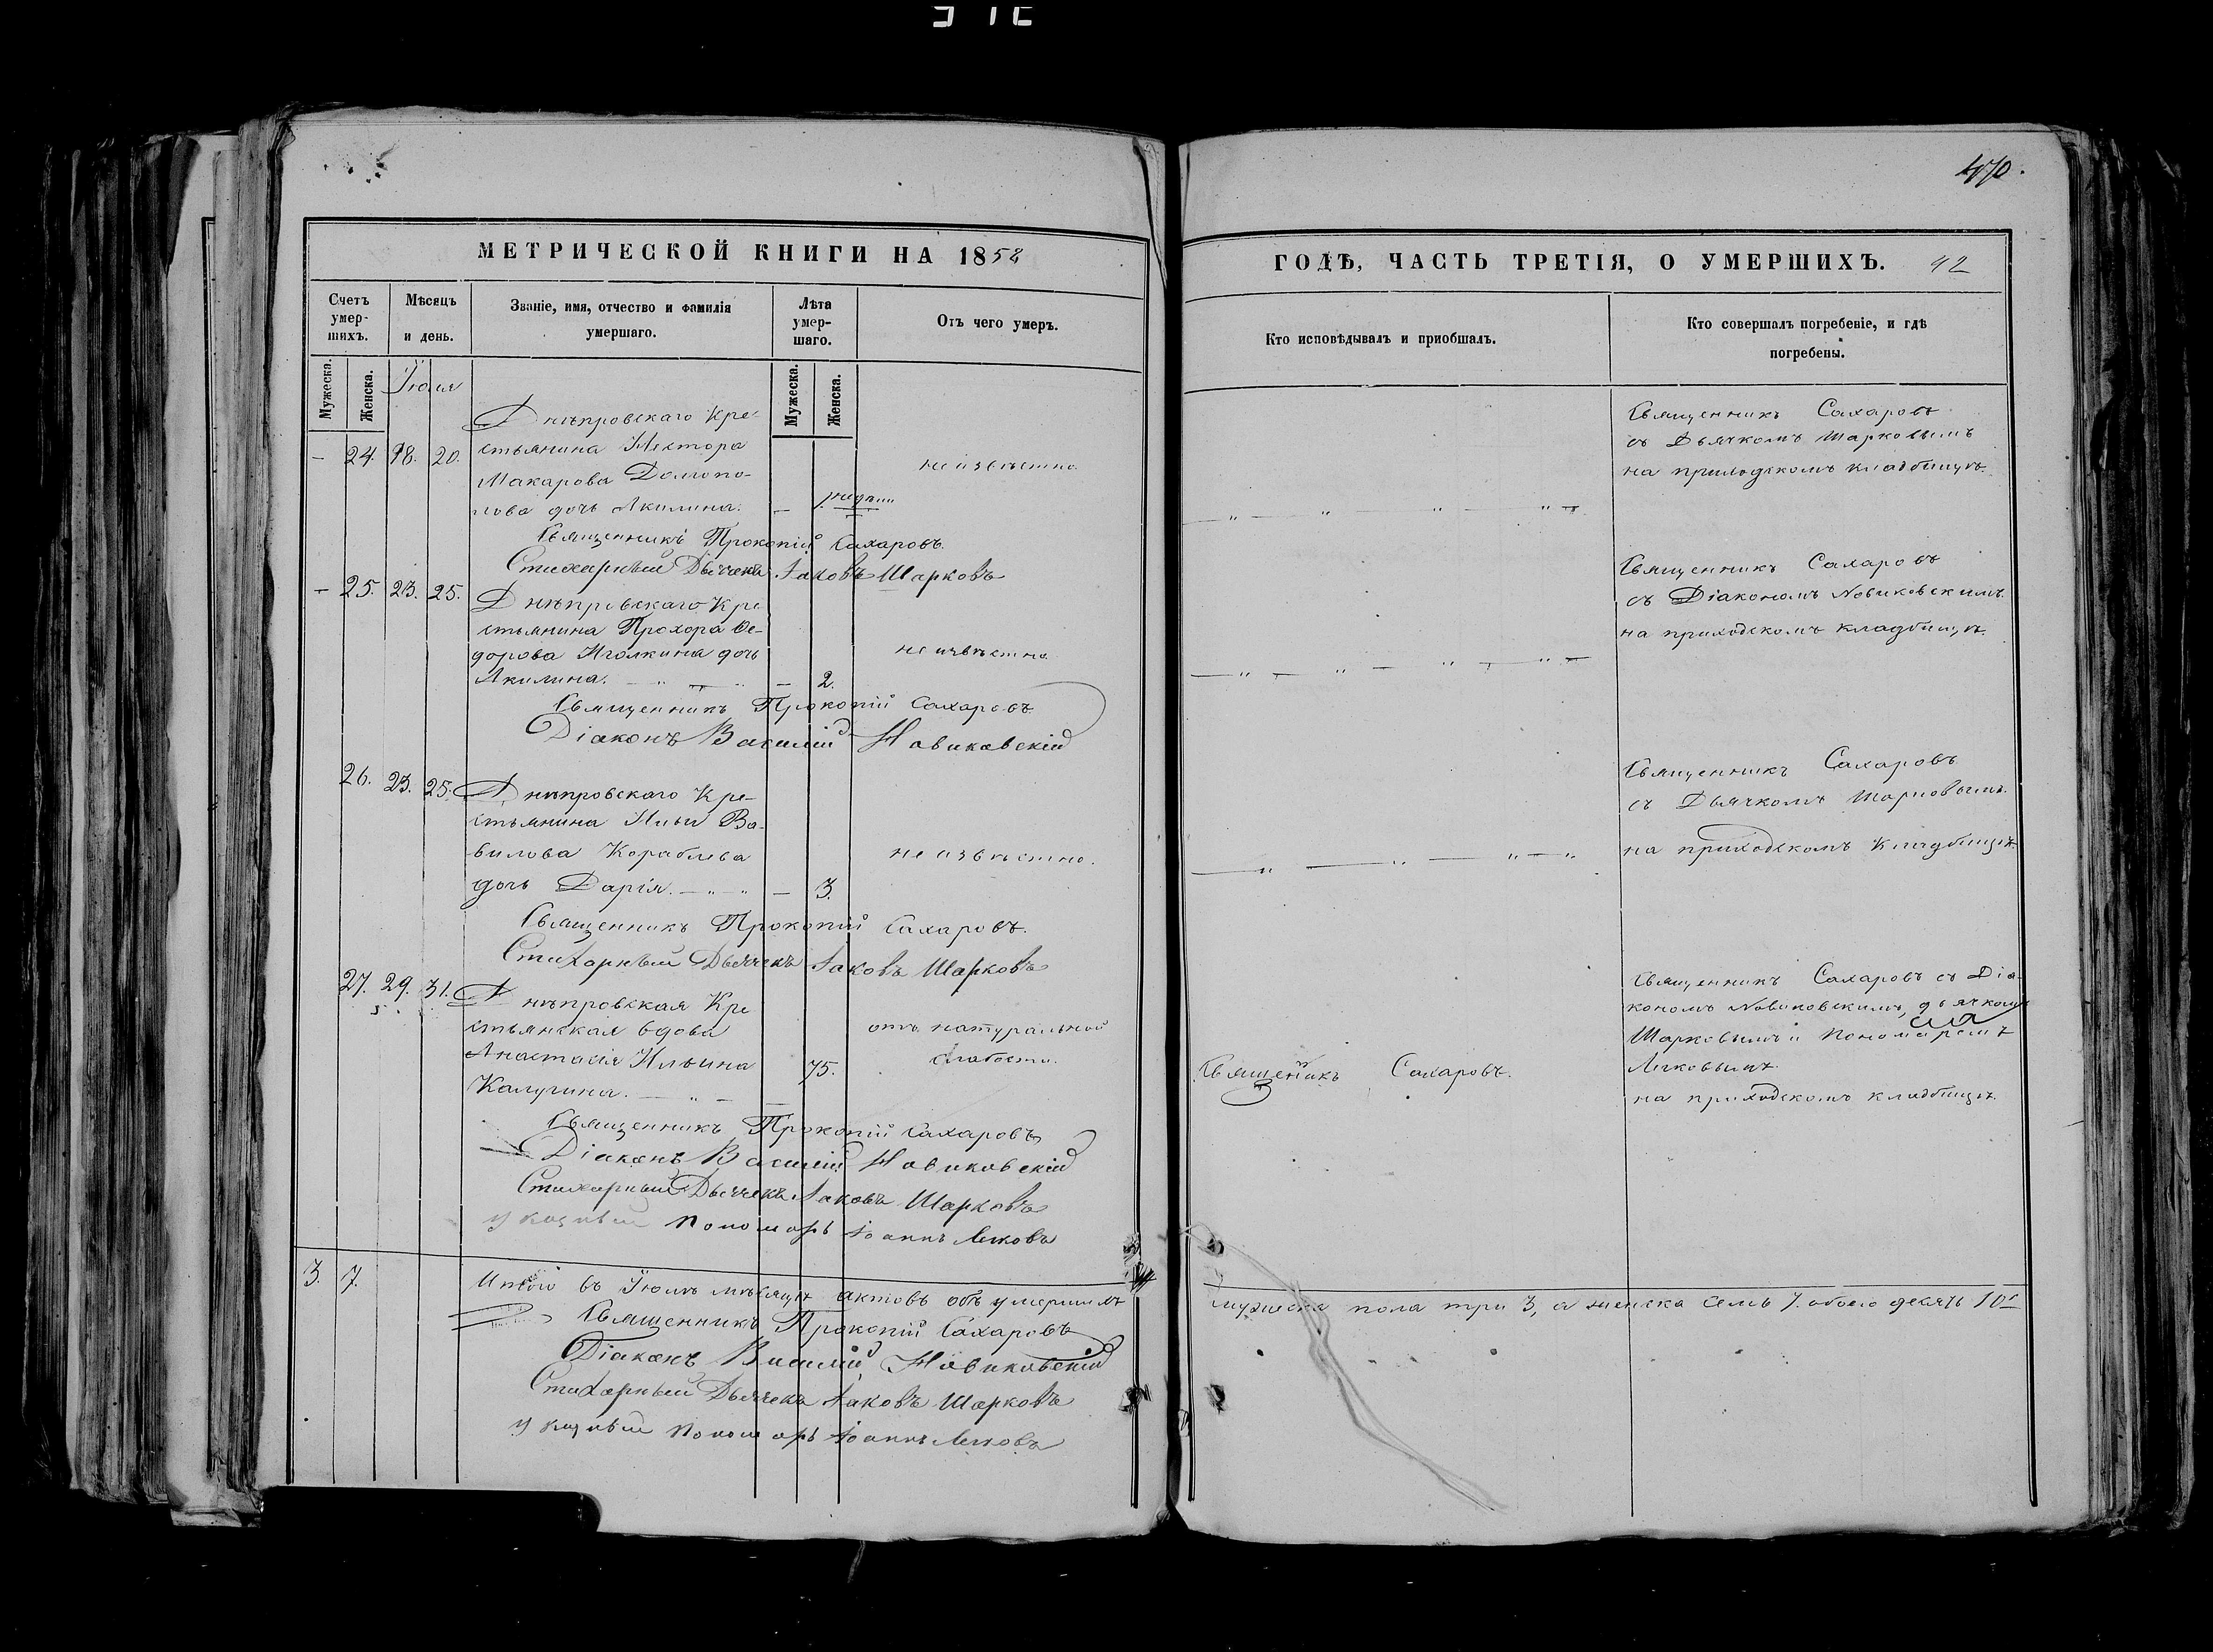 470.
МЕТРИЧЕСКОЙ КНИГИ НА 1858
Счетъ умер-шихъ.
Мѣсяцъ и день.
Званіе, имя, отчество и фамилія умершаго.
Лѣта умер-шаго.
Отъ чего умеръ.
Мужеска.
Женска.
Мужеска.
Женска.
Іюля
Днѣпровскаго Кре-
— 24. 18. 20. стьянина Нестора
неизвѣстно
Макарова
пова дочь Акилина. —
Священникъ Прокопій Сахаровъ.
Стихарный Дьячекъ Іаковъ Шарковъ
— 25. 23. 25. Днѣпровскаго Кре
стьянина Прохора Ѳе-
дорова Иголкина дочь
неизвѣстно
Акилина. — 2.
Священникъ Прокопій Сахаровъ
Діаконъ Василій Новиковскій
26. 23. 25. Днѣпровскаго Кре-
стьянина Ильи Ва-
вилова Кораблева
неизвѣстно.
дочь Дарія. — 3.
Священникъ Прокопій Сахаровъ.
Стихарный Дьячекъ Іаковъ Шарковъ
27. 29. 31. Днѣпровская Кре
стьянская вдова
отъ натуральной
Анастасія Ильина
75.
слабости.
Калугина. —
Священникъ Прокопій Сахаровъ
Діаконъ Василій Новиковскій
Стихарный Дьячекъ Іаковъ Шарковъ
указный Пономарь Іоаннъ
3. 7. Итого въ Іюлѣ мѣсяцѣ актовъ объ умершихъ
Священникъ Прокопій Сахаровъ
Діаконъ Василій Новиковскій
Стихарный Дьячекъ Іаковъ Шарковъ
указный Пономарь Іоаннъ
ГОДѢ, ЧАСТЬ ТРЕТІЯ, О УМЕРШИХЪ. 92
Кто исповѣдывалъ и приобщалъ.
Кто совершалъ погребеніе, и гдѣ погребены.
Священникъ Сахаровъ
съ Дьячкомъ Шарковымъ
на приходскомъ кладбищѣ.
Священникъ Сахаровъ
съ Діакономъ Новиковскимъ
на приходскомъ кладбищѣ.
Священникъ Сахаровъ
съ Дьячкомъ Шарковымъ.
на приходскомъ кладбищѣ.
Священникъ Сахаровъ съ Діа-
кономъ Новиковскимъ, дьячкомъ
Шарковымъ и Пономаремъ
Священникъ Сахаровъ.
на приходскомъ кладбищѣ.
мужеска пола три 3, а женска семь 7. обоего десять 10.